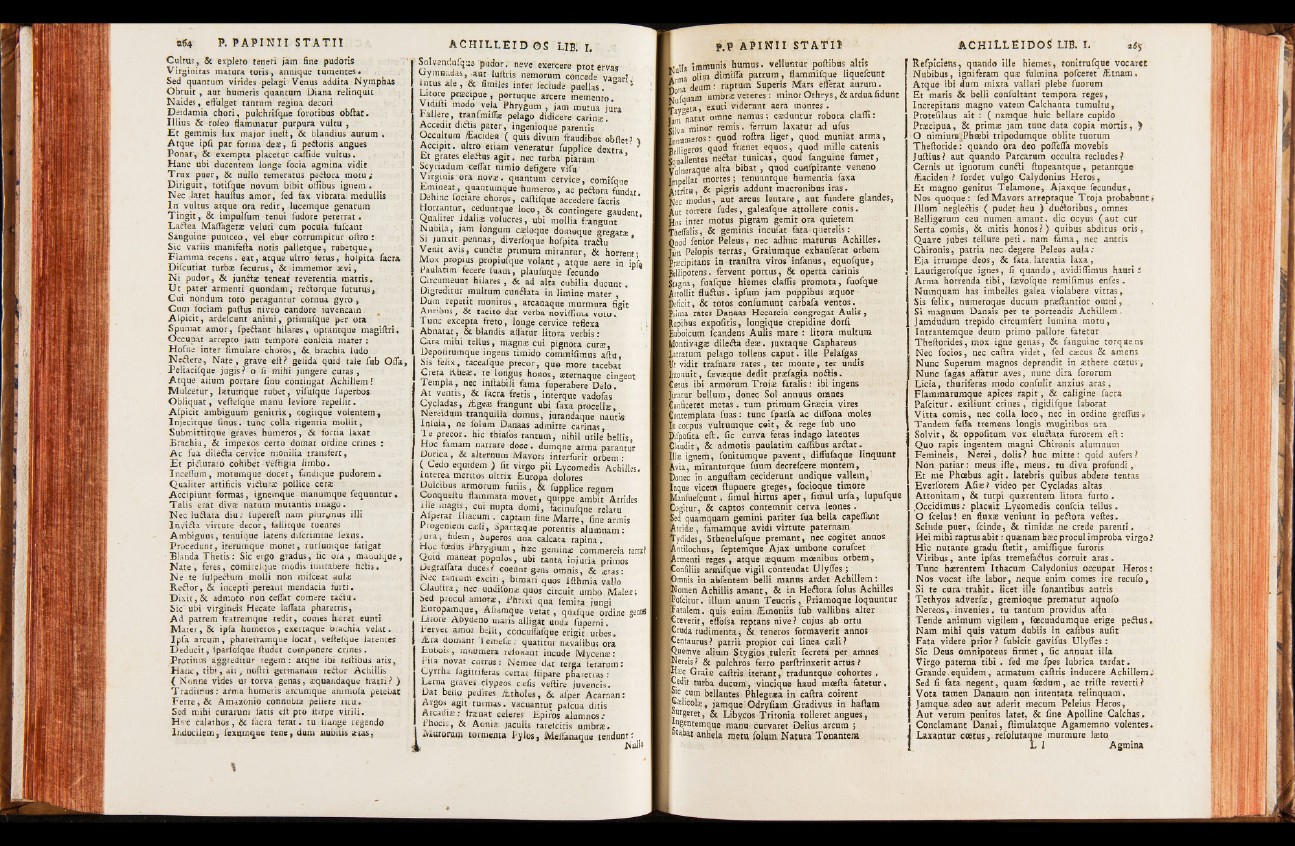 264 P. PAPINII STATII
Cultus, & expleto teneri jam fine pudoris
Virginitas matura toris, annique tumentes.
Sed quantum virides pelagi Venus addita Nymphas
Obruit, aut humeris quantum Diana relinquit
Naides, effulget tantum regina decori
Deidamia chori, pulchrisque sororibus obstat.
Illius & roseo flammatur purpura vultu,
Et gemmis lux major inest, & blandius aurum.
Atque ipsi par forma deæ, si pectoris angues
Ponat, & exempta placetur casside vultus.
Hanc ubi ducentem longe socia agmina vidit
Trux puer, & nullo temeratus pectora motu;
Diriguit, totisque novum bibit ossibus ignem.
Nec latet haustus amor, sed fax vibrata medullis
In vultus atque ora redit, lucemque genarum
Tingit, & impulsum tenui sudore pererrat.
Lactea Massagetæ veluti cum pocula fuscant
Sanguine puniceo, vel ebur corrumpitur ostro:
Sic variis manifesta notis palletque, rubetque,
Flamma recens. eat, atque ultro ferus, hospita sacra
Discutiat turbæ securus, & immemor ævi,
Ni pudor, & junctæ teneat reverentia matris.
Ut pater armenti quondam, rectorque futurus,
Cui nondum toto peraguntur cornua gyro,
Cum sociam pastus niveo candore juvencam
Aspicit, ardescunt animi, primusque per ora
Spumat amor, spectant hilares, optantque magistri.
Occupat arrepto jam tempore conscia mater:
Hosne inter simulare choros, & brachia ludo
Nectere, Nate, grave est? gelida quid tale sub Ossa,
Peliacisque jugis? o si mihi jungere curas,
Atque alium portare sinu contingat Achillem!
Mulcetur, lætumque rubet, visusque superbos
Obliquat, vestesque manu leviore repellit.
Aspicit ambiguum genitrix, cogique volentem,
Injecitque sinus. tunc colla rigentia mollit,
Submittitque graves humeros, & fortia laxat
Brachia, & impexos certo domat ordine crines:
Ac sua dilecta cervice monilia transfert,
Et picturato cohibet vestigia limbo.
Incessum, motumque docet, fandique pudorem.
Qualiter artificis victuræ pollice ceræ
Accipiunt formas, ignemque manumque sequuntur.
Talis erat divæ natum mutantis imago.
Nec luctata diu: superest nam plurimus illi
Invicta virtute decor, fallitque tuentes
Ambiguus, tenuique latens discrimine sexus.
Procedunt, iterumque monet, rursumque fatigat
Blanda Thetis: Sic ergo gradus, sic ora, manusque,
Nate, feres, comitesque modis imitabere fictis.
Ne te suspectum molli non misceat aulæ
Rector, & incepti pereant mendacia furti.
Dixit, & admoto non cessat comere tactu.
Sic ubi virgineis Hecate lassata pharetris,
Ad patrem fratremque redit, comes hæret eunti
Mater, & ipsa humeros, exertaque brachia velat.
Ipsa arcum, pharetramque locat, vestesque latentes
Deducit, sparsosque studet componere crines.
Protinus aggreditur regem: atque ibi testibus aris,
Hanc, tibi, ait, nostri germanam rector Achillis
( Nonne vides ut torva genas, æquandaque fratri? )
Tradimus: arma humeris arcumque animosa petebat
Ferre, & Amazonio connubia pellere ritu.
Sed mihi curarum satis est pro stirpe virili.
Hæc calathos, & sacra ferat. tu frange regendo
Indocilem, sexumque tene, dum nubilis ætas,
ACHILLEIDOS LIB. I.
Solvendusque pudor. neve exercere protervas
Gymnadas, aut lustris nemorum concede vagari.
Intus ale, & similes inter seclude puellas.
Litore præcipue, portuque arcere memento.
Vidisti modo vela Phrygum, jam mutua jura
Fallere, transmissæ pelago didicere carinæ.
Accedit dictis pater, ingenioque parentis
Occultum Æacidea ( quis divum fraudibus obstet? )
Accipit. ultro etiam veneratur supplice dextra,
Et grates electus agit. nec turba piarum
Scyriadum cessat nimio defigere visu
Virginis ora novæ. quantum cervice, comisque
Emineat, quantumque humeros, ac pectora fundat.
Dehinc sociare choros, castisque accedere sacris
Hortantur, ceduntque loco, & contingere gaudent,
Qualiter Idaliæ volucres, ubi mollia frangunt
Nubila, jam longum cæloque domoque gregatæ,
Si junxit pennas, diversoque hospita tractu
Venit avis, cunctæ primum mirantur, & horrent;
Mox propius propiusque volant, atque aere in ipso
Paulatim fecere suam, plausuque secundo
Circumeunt hilares, & ad alta cubilia ducunt.
Digreditur multum cunctata in limine mater,
Dum repetit monitus, arcanaque murmura figit
Auribus, & tacito dat verba novissima vultu.
Tunc excepta freto, longe cervice reflexa
Abnatat, & blandis affatur litora verbis:
Cara mihi tellus, magnæ cui pignora curæ,
Depositumque ingens timido commisimus astu,
Sis felix, taceasque precor, quo more tacebat
Creta Rheæ. te longus honos, æternaque cingent
Templa, nec instabili fama superabere Delo.
At ventis, & sacra fretis, interque vadosas
Cycladas, Ægeæ frangunt ubi saxa procellæ,
Nereidum tranquilla domus, jurandaque nautis
Insula, ne solum Danaas admitte carinas,
Te precor. hic thiasos tantum, nihil utile bellis,
Hoc famam narrare doce. dumque arma parantur
Dorica, & alternum Mavors interfurit orbem:
( Cedo equidem ) sit virgo pii Lycomedis Achilles.
Interea meritos ultrix Europa dolores
Dulcibus armorum furiis, & supplice regum
Conquestu flammata movet, quippe ambit Atrides
Ille magis, cui nupta domi, facinusque relatu
Asperat Iliacum. captam sine Marte, sine armis
Progeniem cæli, Spartæque potentis alumnam:
Jura, fidem, Superos una calcata rapina.
Hoc fœdus Phrygium, hæc geminæ commercia terræ?
Quid maneat populos, ubi tanta injuria primos
Degrassata duces? coeunt gens omnis, & ætas:
Nec tantum exciti, bimari quos Isthmia vallo
Claustra, nec undisonæ quos circuit umbo Maleæ:
Sed procul amotæ, Phrixi qua semita jungi
Europamque, Asiamque vetat, quæque ordine gentes
Litore Abydeno maris alligat unda superni.
Fervet amor belli, concussasque erigit urbes.
Æra domant Temesæ: quatitur navalibus ora
Eubois, innumera resonant incude Mycenæ:
Pisa novat currus: Nemee dat terga ferarum:
Cyrrha sagittiferas certat stipare pharetras:
Lerna graves clypeos cæsis vestire juvencis.
Dat bello pedites Ætholes, & asper Acarnan:
Argos agit turmas. vacuantur pascua ditis
Arcadiæ: frænat celeres Epiros alumnos:
Phocis, & Aoniæ jaculis rarescitis umbræ.
Murorum tormenta Pylos, Messanaque tendunt:
Nulla
P. PAPINII STATII
Nulla immunis humus. velluntur postibus altis
Arma olim dimissa patrum, flammisque liquescunt
Dona deum: raptum Superis Mars efferat aurum.
Nusquam umbræ veteres: minor Othrys, & ardua sidunt
Taygeta, exuti viderunt aera montes.
Jam natat omne nemus; cæduntur robora classi:
Silva minor remis. ferrum laxatur ad usus
Innumeros: quod rostra liget, quod muniat arma,
Belligeros quod frænet equos, quod mille catenis
Squallentes nectat tunicas, quod sanguine fumet,
Vulneraque alta bibat, quod conspirante veneno
Impellat mortes; tenuantque humentia saxa
Attritu, & pigris addunt mucronibus iras.
Nec modus, aut arcus lentare, aut fundere glandes,
Aut torrere sudes, galeasque attollere conis.
Hos inter motus pigram gemit ora quietem
Thessalis, & geminis incusat fata querelis:
Quod senior Peleus, nec adhuc maturus Achilles.
Jam Pelopis terras, Graiumque exhauserat orbem
Præcipitans in transtra viros insanus, equosque,
Bellipotens. fervent portus, & operta carinis
Stagna, suasque hiemes classis promota, suosque
Attollit fluctus. ipsum jam puppibus æquor
Deficit, & totos consumunt carbasa ventos.
Prima rates Danaas Hecateia congregat Aulis,
Rupibus expositis, longique crepidine dorsi
Euboicum scandens Aulis mare: litora multum
Montivagæ dilecta deæ. juxtaque Caphareus
Latratum pelago tollens caput. ille Pelasgas
Ut vidit tranare rates, ter monte, ter undis
Intonuit, sævæque dedit præsagia noctis.
Cœtus ibi armorum Trojæ fatalis: ibi ingens
Juratur bellum, donec Sol annuus omnes
Conficeret metas. tum primum Græcia vires
Contemplata suas: tunc sparsa ac dissona moles
In corpus vultumque coit, & rege sub uno
Disposita est. sic curva feras indago latentes
Claudit, & admotis paulatim cassibus arctat.
Illæ ignem, sonitumque pavent, diffusaque linquunt
Avia, miranturque suum decrescere montem,
Donec in angustam ceciderunt undique vallem,
Inque vicem stupuere greges, socioque timore
Mansuescunt. simul hirtus aper, simul ursa, lupusque
Cogitur, & captos contemnit cerva leones.
Sed quamquam gemini pariter sua bella capessant
Atridæ, famamque avidi virtute paternam
Tydides, Sthenelusque premant, nec cogitet annos
Antilochus, septemque Ajax umbone coruscet
Armenti reges, atque æquum mœnibus orbem,
Consiliis armisque vigil contendat Ulysses;
Omnis in absentem belli manus ardet Achillem:
Nomen Achillis amant, & in Hectora solus Achilles
Poscitur. illum unum Teucris, Priamoque loquuntur
Fatalem. quis enim Æmoniis sub vallibus alter
Creverit, effossa reptans nive? cujus ab ortu
Cruda rudimenta, & teneros formaverit annos
Centaurus? patrii propior cui linea cæli?
Quemve alium Stygios tulerit secreta per amnes
Nereis? & pulchros ferro perstrinxerit artus?
Hæc Graiæ castris iterant, traduntque cohortes.
Cedit turba ducum, vincique haud mœsta fatetur.
Sic cum bellantes Phlegræa in castra coirent
Cælicolæ, jamque Odrysiam Gradivus in hastam
Surgeret, & Libycos Tritonia tolleret angues,
Ingentemque manu curvaret Delius arcum;
Stabat anhela metu solum Natura Tonantem
ACHILLEIDOS LIB. I. 265
Respiciens, quando ille hiemes, tonitrusque vocaret
Nubibus, igniferam quæ fulmina posceret Ætnam.
Atque ibi dum mixta vallati plebe suorum
Et maris & belli consultant tempora reges,
Increpitans magno vatem Calchanta tumultu,
Protesilaus ait: ( namque huic bellare cupido
Præcipua, & primæ jam tunc data copia mortis, )
O nimium Phœbi tripodumque oblite tuorum
Thestoride: quando ora deo possessa movebis
Justius? aut quando Parcarum occulta recludes?
Cernis ut ignotum cuncti stupeantque, petantque
Æaciden? sordet vulgo Calydonius Heros,
Et magno genitus Telamone, Ajaxque secundus,
Nos quoque: sed Mavors arreptaque Troja probabunt;
Illum neglectis ( pudet heu ) ductoribus, omnes
Belligerum ceu numen amant. dic ocyus ( aut cur
Serta comis, & mitis honos? ) quibus abditus oris,
Quare jubes tellure peti. nam fama, nec antris
Chironis, patria nec degere Peleos aula:
Eja irrumpe deos, & fata latentia laxa,
Laurigerosque ignes, si quando, avidissimus hauri:
Arma horrenda tibi, sævosque remisimus enses.
Numquam has imbelles galea violabere vittas,
Sis felix, numeroque ducum præstantior omni,
Si magnum Danais per te portendis Achillem.
Jamdudum trepido circumfert lumina motu,
Intrantemque deum primo pallore fatetur
Thestorides, mox igne genas, & sanguine torquens
Nec socios, nec castra videt, sed cæcus & amens
Nunc Superum magnos deprendit in æthere cœtus,
Nunc sagas affatur aves, nunc dira sororum
Licia, thuriferas modo consulit anxius aras,
Flammarumque apices rapit, & caligine sacra
Pascitur. exiliunt crines, rigidisque laborat
Vitta comis, nec colla loco, nec in ordine gressus.
Tandem fessa tremens longis mugitibus ora
Solvit, & oppositum vox eluctata furorem est:
Quo rapis ingentem magni Chironis alumnum
Femineis, Nerei, dolis? huc mitte: quid aufers?
Non patiar: meus iste, meus. tu diva profundi,
Et me Phœbus agit. latebris quibus abdere tentas
Eversorem Asiæ? video per Cycladas altas
Attonitam, & turpi quærentem litora furto.
Occidimus: placuit Lycomedis conscia tellus.
O scelus! en fluxæ veniunt in pectora vestes.
Scinde puer, scinde, & timidæ ne crede parenti.
Hei mihi raptus abit: quænam hæc procul improba virgo?
Hic nutante gradu stetit, amissique furoris
Viribus, ante ipsas tremefactus corruit aras.
Tunc hærentem Ithacum Calydonius occupat Heros:
Nos vocat iste labor, neque enim comes ire recuso,
Si te cura trahit. licet ille sonantibus antris
Tethyos adversæ, gremioque prematur aquoso
Nereos, invenies. tu tantum providus astu
Tende animum vigilem, fœcundumque erige pectus.
Nam mihi quis vatum dubiis in casibus ausit
Fata videre prior? subicit gavisus Ulysses:
Sic Deus omnipotens firmet, sic annuat illa
Virgo paterna tibi. sed me spes lubrica tardat.
Grande equidem, armatum castris inducere Achillem;
Sed si fata negent, quam fœdum, ac triste reverti?
Vota tamen Danaum non intentata relinquam.
Jamque adeo aut aderit mecum Peleius Heros,
Aut verum penitus latet, & sine Apolline Calchas.
Conclamant Danai, stimulatque Agamemno volentes.
Laxantur cœtus, resolutaque murmure læto
L l Agmina